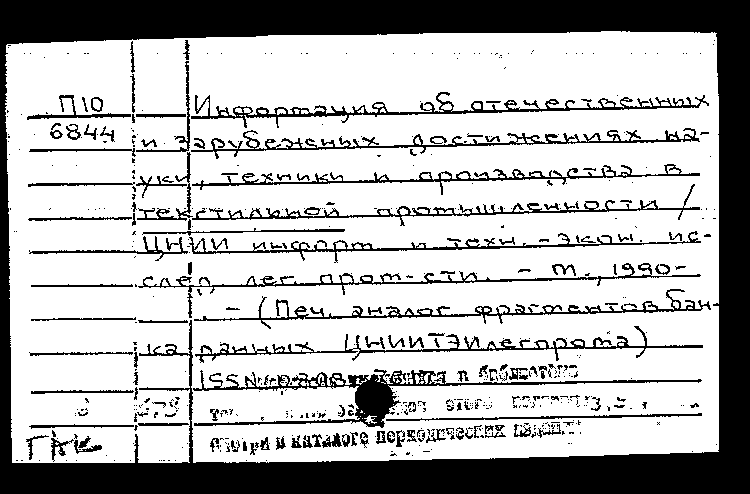 П10 Информация об отечественных
6844 и зарубежных достижениях на-
уки, техники и производства в
текстильной промышленности /
ЦНИИ информ. и техн.-экон. ис-
след. лег. пром-сти. - М., 1990-
. - (Печ. аналог фрагментов бан-
ка данных ЦНИИТЭИлегпрома)
ISSN в библиотеке
этого
смотри в каталоге периодических изданий
ГАК